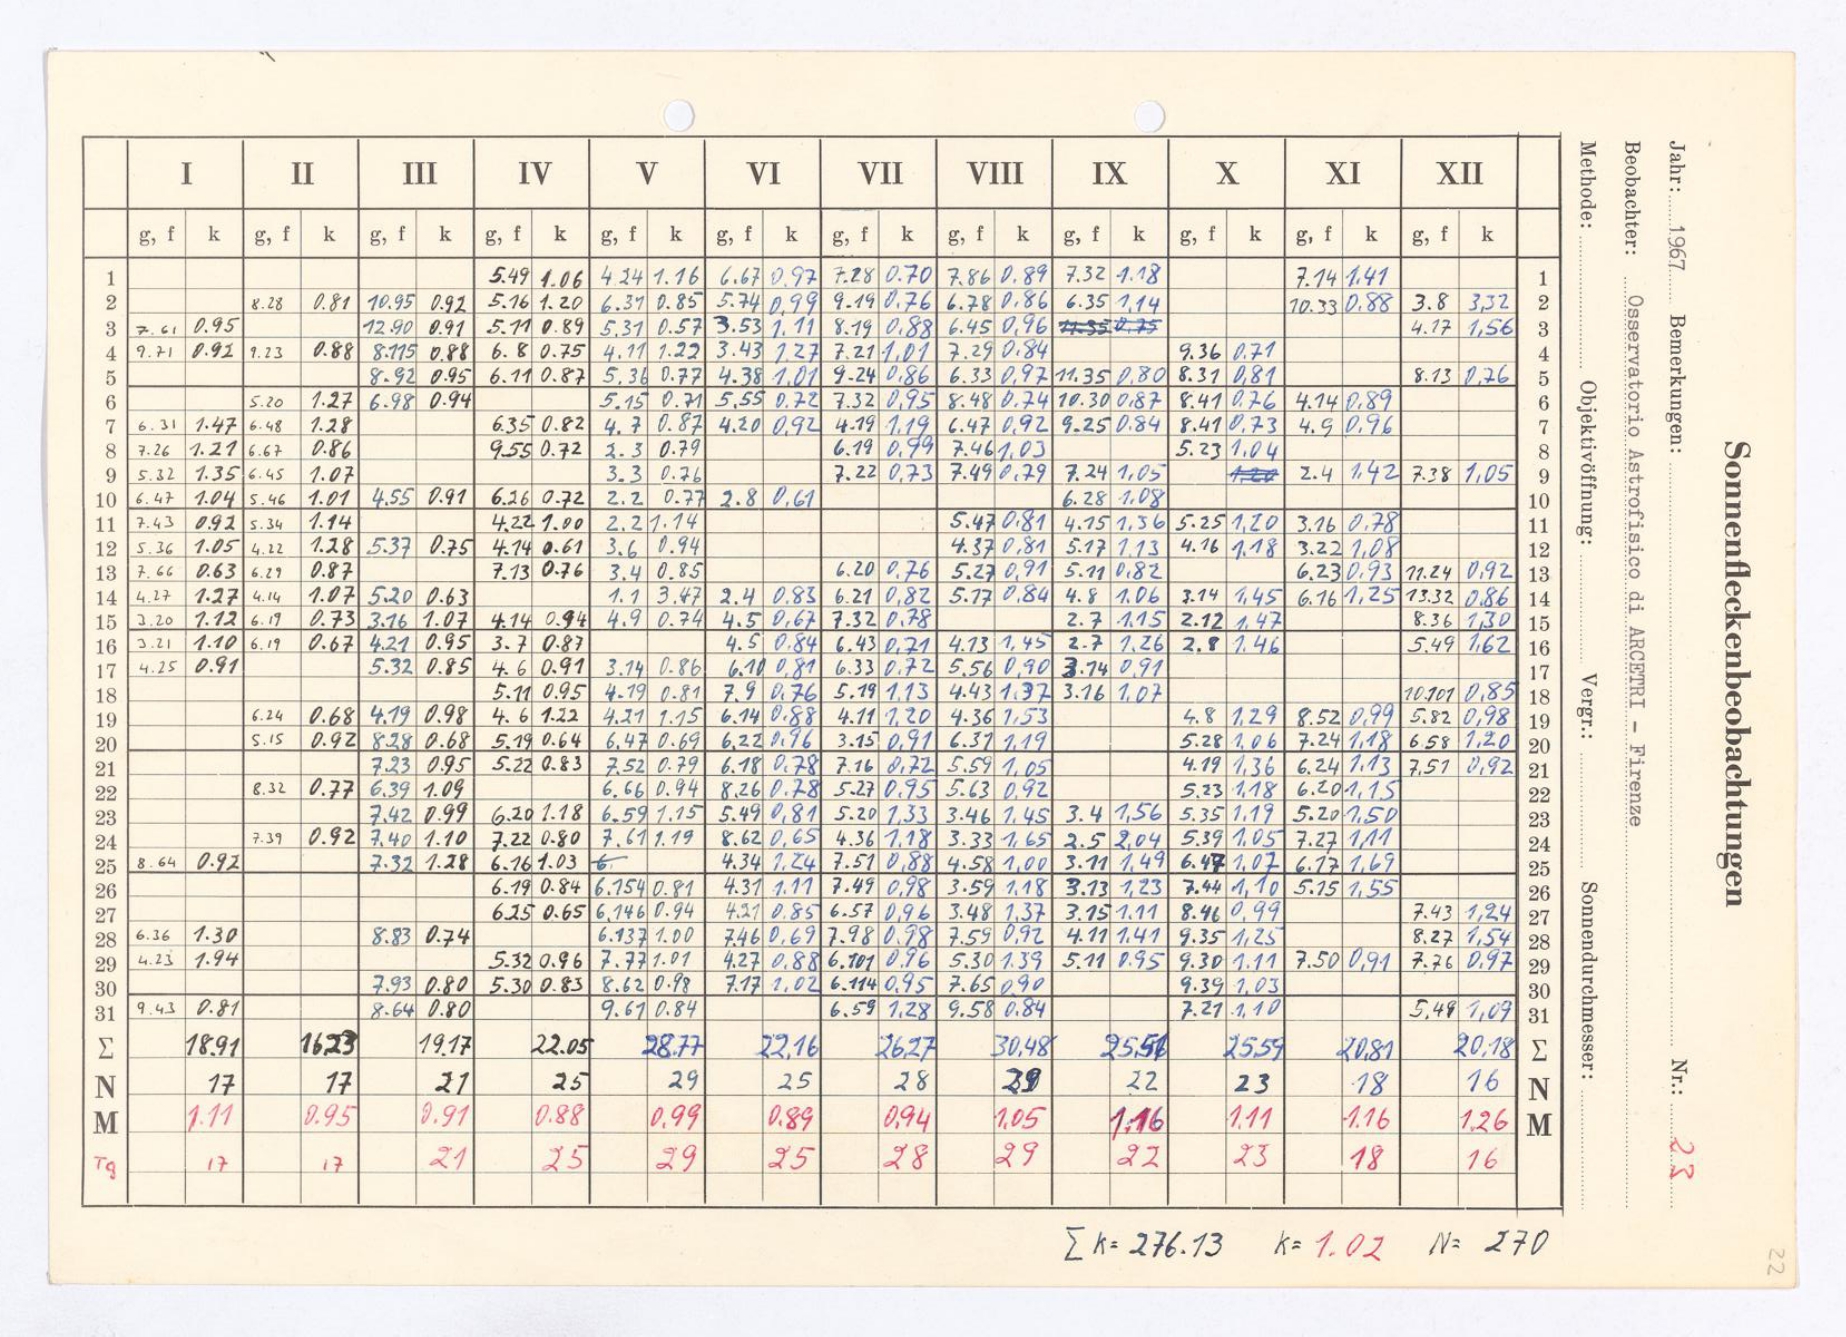 I II III IV V VI VII VIII IX X XI XII
g, f k g, f k g, f k g, f k g, f k g, f k g, f k g, f k g, f k g, f k g, f k g, f k
1 5.49 1.06 4.24 1.16 6.67 0,97 7.28 0.70 7.86 0,89 7.32 1.18 7.14 1,41 1
2 8.28 0.81 10.95 0.92 5.16 1.20 6.31 0.85 5.74 0,99 9.19 0,76 6.78 0,86 6.35 1,14 10.33 0,88 3.8 3,32 2
3 7.61 0.95 12.90 0.91 5.11 0.89 5,31 0.57 3.53 1.11 8.19 0,88 6.45 0,96 11.35 0,75 4.17 1,56 3
4 9.71 0.92 9.23 0.88 8.115 0.88 6.8 0.75 4.11 1.22 3.43 1,27 7.21 1,01 7.29 0.84 9.36 0,71 4
5 8.92 0.95 6.11 0.87 5,36 0.77 4.38 1,01 9.24 0,86 6.33 0,97 11.35 0,80 8.31 0,81 8.13 0,76 5
6 5.20 1.27 6.98 0.94 5.15 0.71 5,55 0.72 7.32 0,95 8.48 0,74 10.30 0,87 8.41 0,76 4.14 0,89 6
7 6.31 1.47 6.48 1.28 6.35 0.82 4.7 0.87 4.20 0,92 4.19 1,19 6.47 0,92 9.25 0.84 8.41 0,73 4.9 0,96 7
8 7.26 1.21 6.67 0.86 9.55 0.72 2.3 0.79 6.19 0,99 7.46 1,03 5.23 1,04 8
9 5.32 1.35 6.45 1.07 3.3 0.76 7.22 0,73 7.49 0,79 7.24 1,05 1,20 2.4 1,42 7.38 1,05 9
10 6.47 1.04 5.46 1.01 4.55 0.91 6.26 0.72 2.2 0.77 2.8 0,61 6.28 1.08 10
11 7.43 0.92 5.34 1.14 4.22 1.00 2.2 1.14 5.47 0,81 4.15 1,36 5.25 1,20 3.16 0,78 11
12 5.36 1.05 4.22 1.28 5.37 0.75 4.14 0.61 3.6 0.94 4.37 0,81 5.17 1,13 4.16 1,18 3.22 1,08 12
13 7.66 0.63 6.29 0.87 7.13 0.76 3.4 0.85 6.20 0,76 5.27 0,91 5.11 0,82 6.23 0,93 11.24 0,92 13
14 4.27 1.27 4.14 1.07 5.20 0.63 1.1 3.47 2.4 0,83 6.21 0,82 5.17 0,84 4.8 1.06 3.14 1,45 6.16 1,25 13.32 0,86 14
15 3.20 1.12 6.19 0.73 3.16 1.07 4.14 0.94 4.9 0.74 4.5 0,67 7.32 0,78 2.7 1.15 2.12 1,47 8.36 1,30 15
16 3.21 1.10 6.19 0.67 4.21 0.95 3.7 0.87 4.5 0,84 6.43 0,71 4.13 1,45 2.7 1,26 2.8 1.46 5.49 1,62 16
17 4.25 0.91 5.32 0.85 4.6 0.91 3.14 0.86 6.10 0,81 6.33 0,72 5.56 0,90 3.14 0,91 17
18 5.11 0.95 4.19 0.81 7.9 0,76 5.19 1,13 4.43 1,37 3.16 1,07 10.101 0,85 18
19 6.24 0.68 4.19 0.98 4.6 1.22 4.21 1.15 6.14 0.88 4.11 1,20 4.36 1,53 4.8 1,29 8.52 0,99 5.82 0,98 19
20 5.15 0.92 8.28 0.68 5.19 0.64 6,47 0.69 6,22 0,96 3.15 0,91 6.31 1,19 5.28 1,06 7.24 1,18 6.58 1,20 20
21 7.23 0.95 5.22 0.83 7,52 0.79 6.18 0,78 7.16 0,72 5.59 1,05 4.19 1,36 6.24 1,13 7,51 0,92 21
22 8.32 0.77 6.39 1.09 6.66 0.94 8,26 0,78 5.27 0,95 5.63 0,92 5.23 1,18 6.20 1,15 22
23 7.42 0.99 6.20 1.18 6.59 1.15 5.49 0,81 5.20 1,33 3.46 1,45 3.4 1,56 5.35 1,19 5.20 1,50 23
24 7.39 0.92 7.40 1.10 7.22 0.80 7.61 1.19 8.62 0,65 4.36 1,18 3.33 1,65 2.5 2,04 5.39 1.05 7.27 1,11 24
25 8.64 0.92 7.32 1.28 6.16 1.03 6. 4.34 1,24 7.51 0,88 4.58 1,00 3.11 1,49 6.47 1,07 6.17 1,69 25
26 6.19 0.84 6.154 0.81 4.31 1.11 7.49 0,98 3.59 1,18 3.13 1,23 7.44 1,10 5.15 1,55 26
27 6.25 0.65 6,146 0.94 4.21 0,85 6.57 0,96 3.48 1,37 3.15 1.11 8.46 0,99 7.43 1,24 27
28 6.36 1.30 8.83 0.74 6.137 1.00 7.46 0,69 7.98 0,98 7.59 0,92 4.11 1.41 9.35 1,25 8.27 1,54 28
29 4.23 1.94 5.32 0.96 7.77 1.01 4.27 0,88 6.101 0,96 5.30 1.39 5.11 0.95 9.30 1.11 7.50 0,91 7.76 0,97 29
30 7.93 0.80 5.30 0.83 8.62 0.98 7.17 1,02 6.114 0,95 7.65 0,90 9.39 1.03 30
31 9.43 0.81 8.64 0.80 9.61 0.84 6.59 1,28 9.58 0.84 7.21 1,10 5,49 1,09 31
Σ 18.91 16.23 19.17 22.05 28.77 22,16 26,27 30,48 25,56 25,59 20,81 20,18 Σ
N 17 17 21 25 29 25 28 29 22 23 18 16 N
M 1.11 0.95 0.91 0.88 0,99 0.89 0,94 1,05 1,16 1.11 1.16 1,26 M
Tg 17 17 21 25 29 25 28 29 22 23 18 16
Σ k= 276.13 k= 1.02 N= 270
Sonnenfleckenbeobachtungen
Jahr: 1967 Bemerkungen: Nr.: 23
Beobachter: Osservatorio Astrofisico di ARCETRI - Firenze
Methode: Objektivöffnung: Vergr.: Sonnendurchmesser:
22